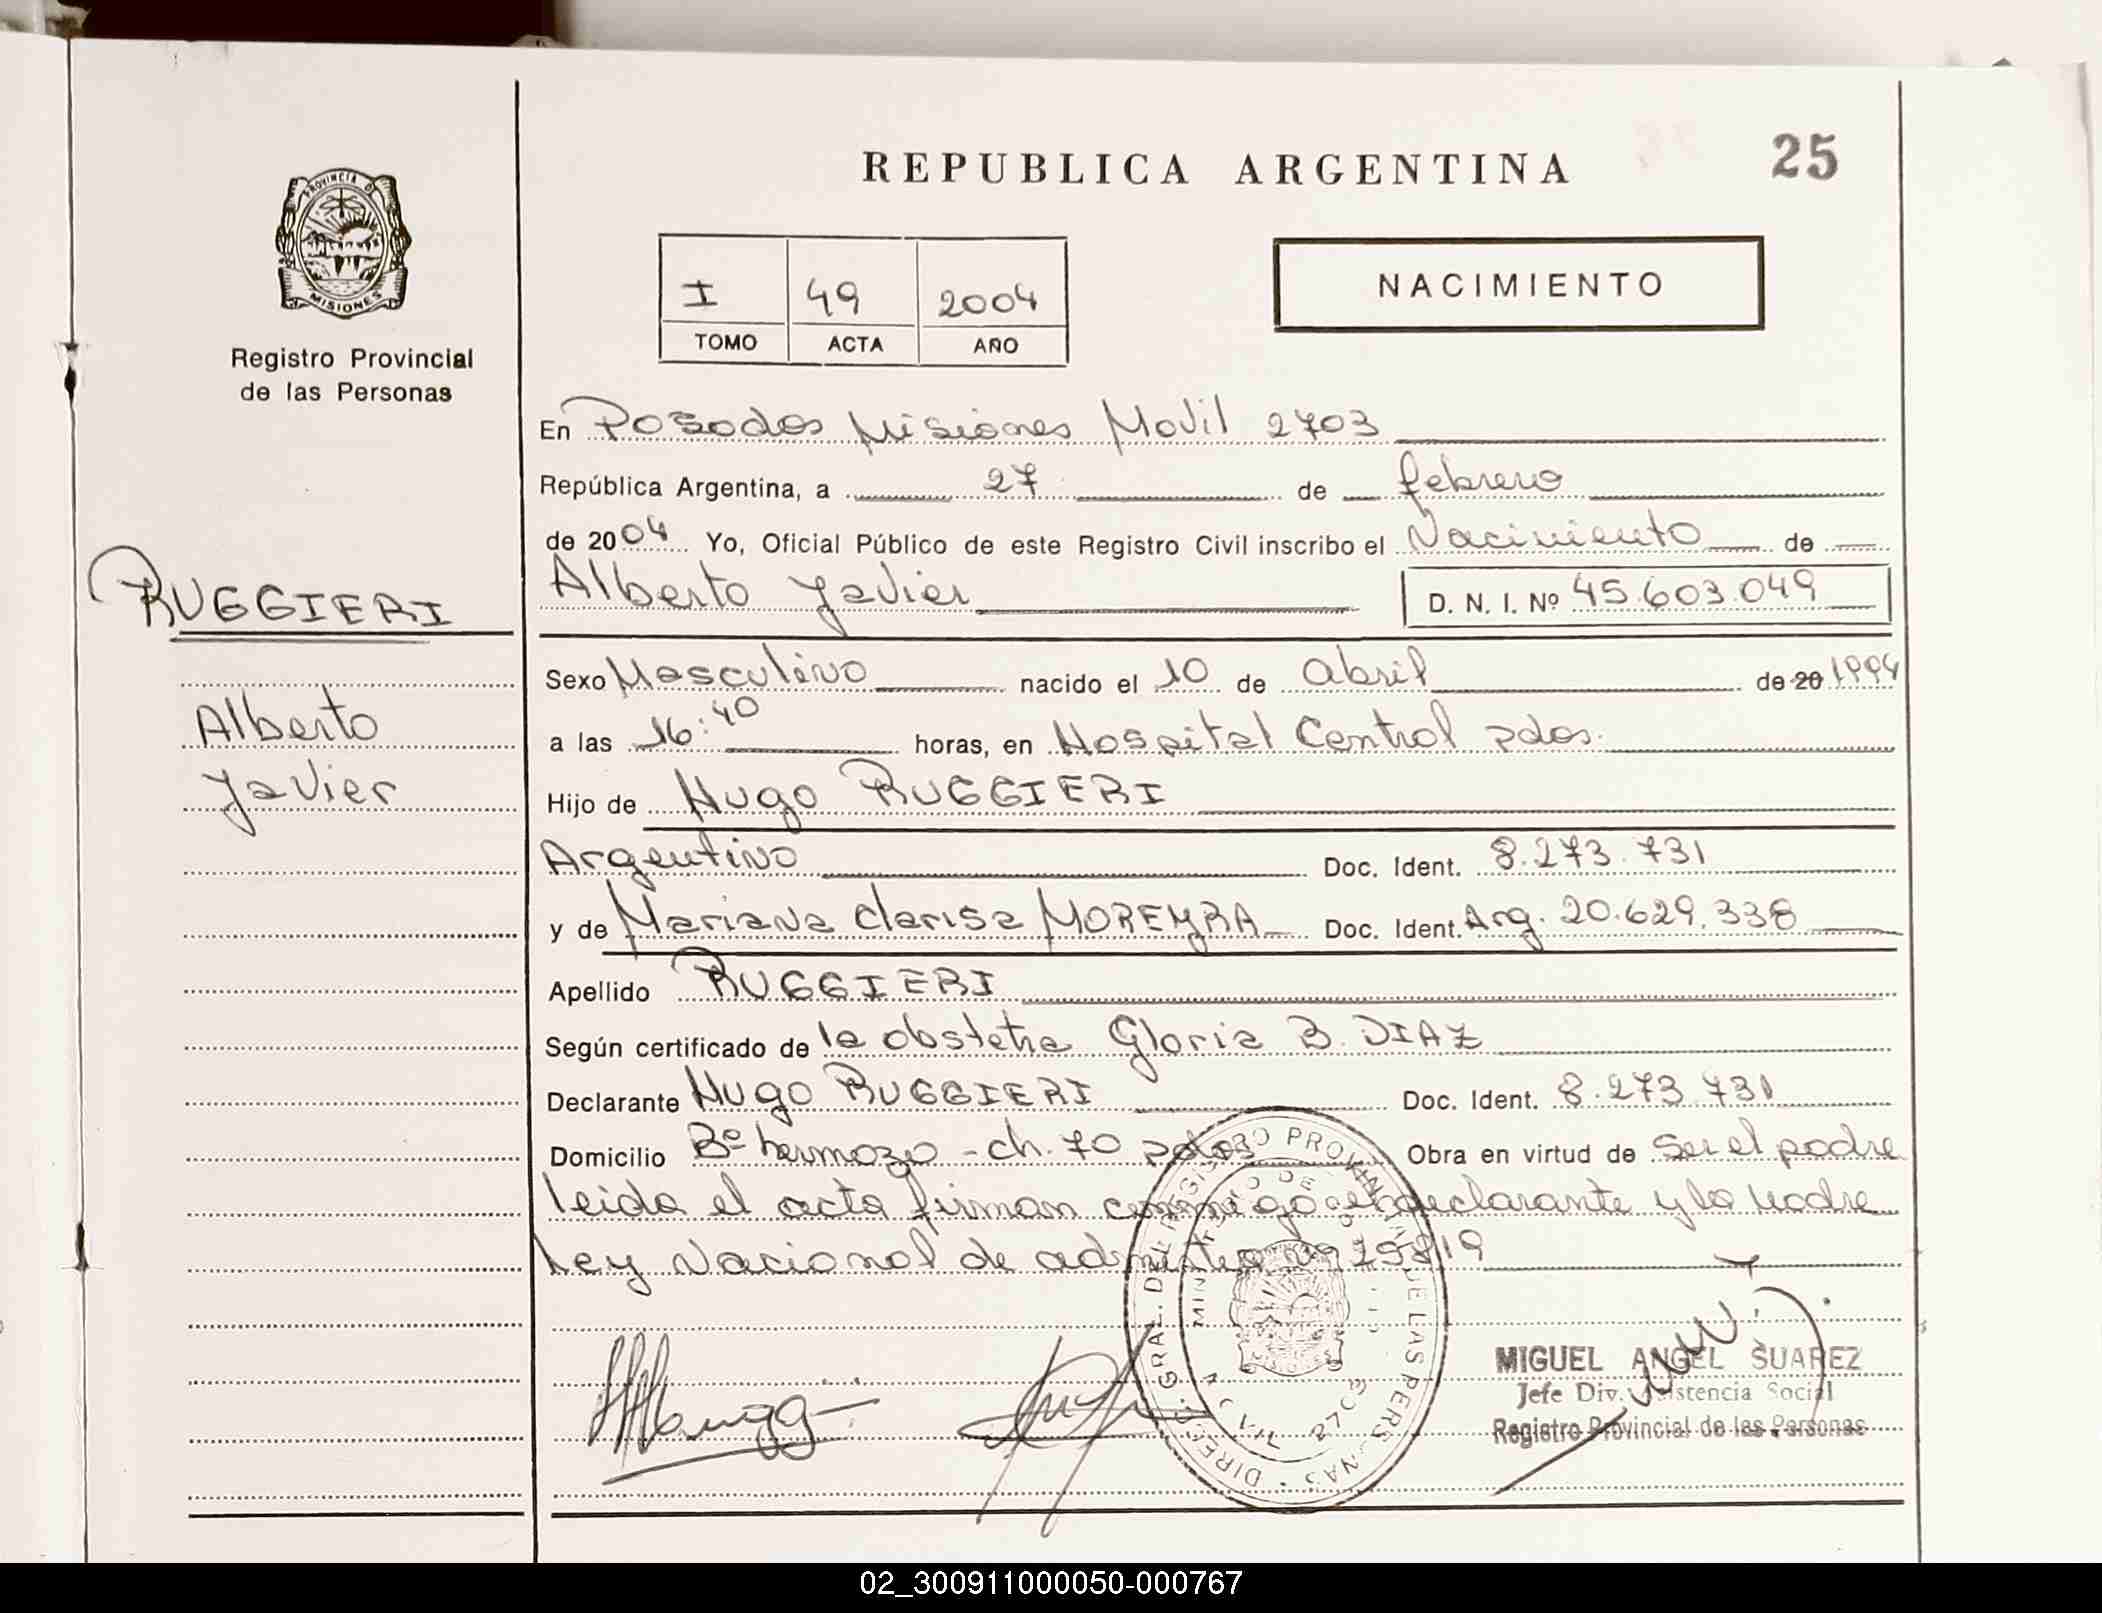 REPUBLICA ARGENTINA
25
PROVINCIA DE
MISIONES
Registro Provincial
de las Personas
I 49 2004
TOMO ACTA AÑO
NACIMIENTO
En Posadas Misiones Movil 2703
República Argentina, a 27 de febrero
de 2004 Yo, Oficial Público de este Registro Civil inscribo el Nacimiento de
Alberto Javier D. N. I. Nº 45.603.049
RUGGIERI
Alberto
Javier
Sexo Masculino nacido el 10 de abril de 20 1994
a las 16:40 horas, en Hospital Central pdas.
Hijo de Hugo RUGGIERI
Argentino Doc. Ident. 8.273.731
y de Mariana Clarisa MOREYRA Doc. Ident. Arg. 20.629.338
Apellido RUGGIERI
Según certificado de la obstetra Gloria B. DIAZ
Declarante Hugo RUGGIERI Doc. Ident. 8.273.731
Domicilio Bº hermozo - ch. 70 pdas Obra en virtud de Ser el padre
leida el acta firman conmigo el declarante y la madre
Ley Nacional de 25819
MIGUEL ANGEL SUAREZ
Jefe Div. Asistencia Social
Registro Provincial de las Personas
02_300911000050-000767